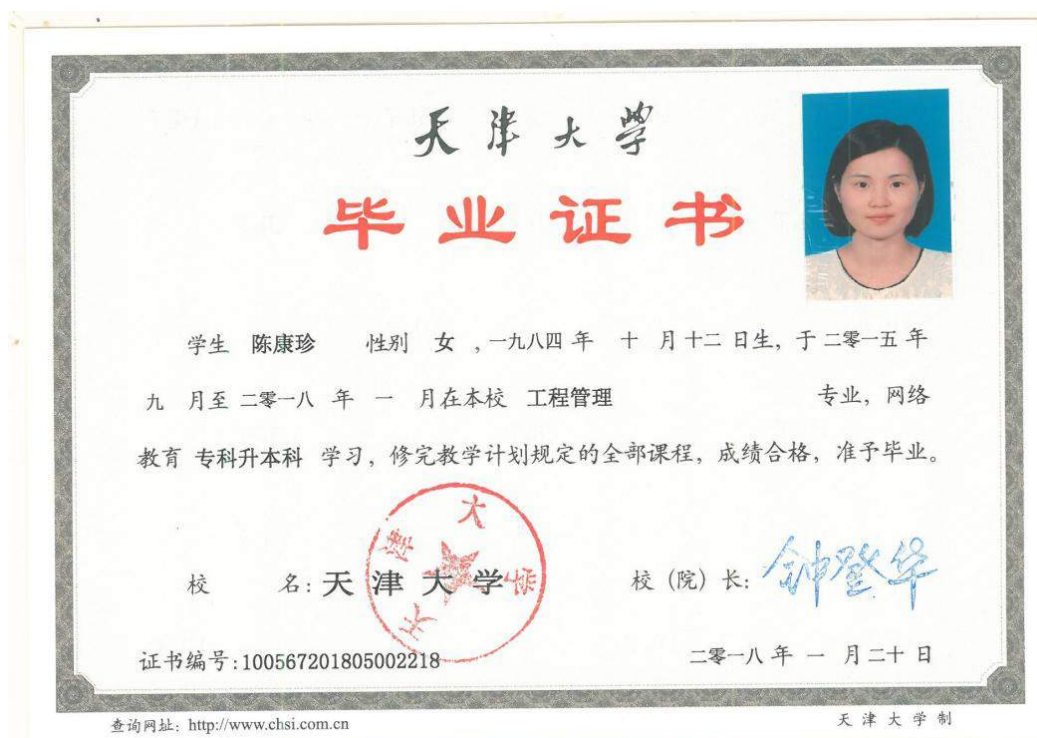 天津大学
毕业证书
学生 陈康珍 性别 女 ,一九八四 年 十 月 十二 日生, 于 二零一五 年
九 月至 二零一八 年 一 月在本校 工程管理 专业, 网络
教育 专科升本科 学习, 修完教学计划规定的全部课程, 成绩合格, 准予毕业。
天津大学
校 名: 天津大学 校 (院) 长: 钟登华
证书编号:100567201805002218 二零一八 年 一 月 二十 日
查询网址: http://www.chsi.com.cn 天津大学制